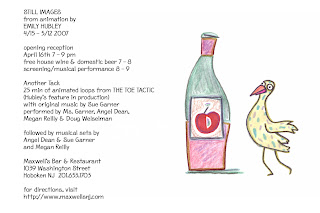 STILL IMAGES
from animation by
EMILY HUBLEY
4/15 - 5/12 2007
opening reception
April 16th 7 - 9 pm
free house wine & domestic beer 7 - 8
screening/musical performance 8 - 9
Another Tack
25 min of animated loops from THE TOE TACTIC
(Hubley's feature in production)
with original music by Sue Garner
performed by Ms. Garner, Angel Dean,
Megan Reilly & Doug Weiselman
followed by musical sets by
Angel Dean & Sue Garner
and Megan Reilly
Maxwell's Bar & Restaurant
1039 Washington Street
Hoboken NJ 201.653.1703
for directions, visit
http://www.maxwellsnj.com